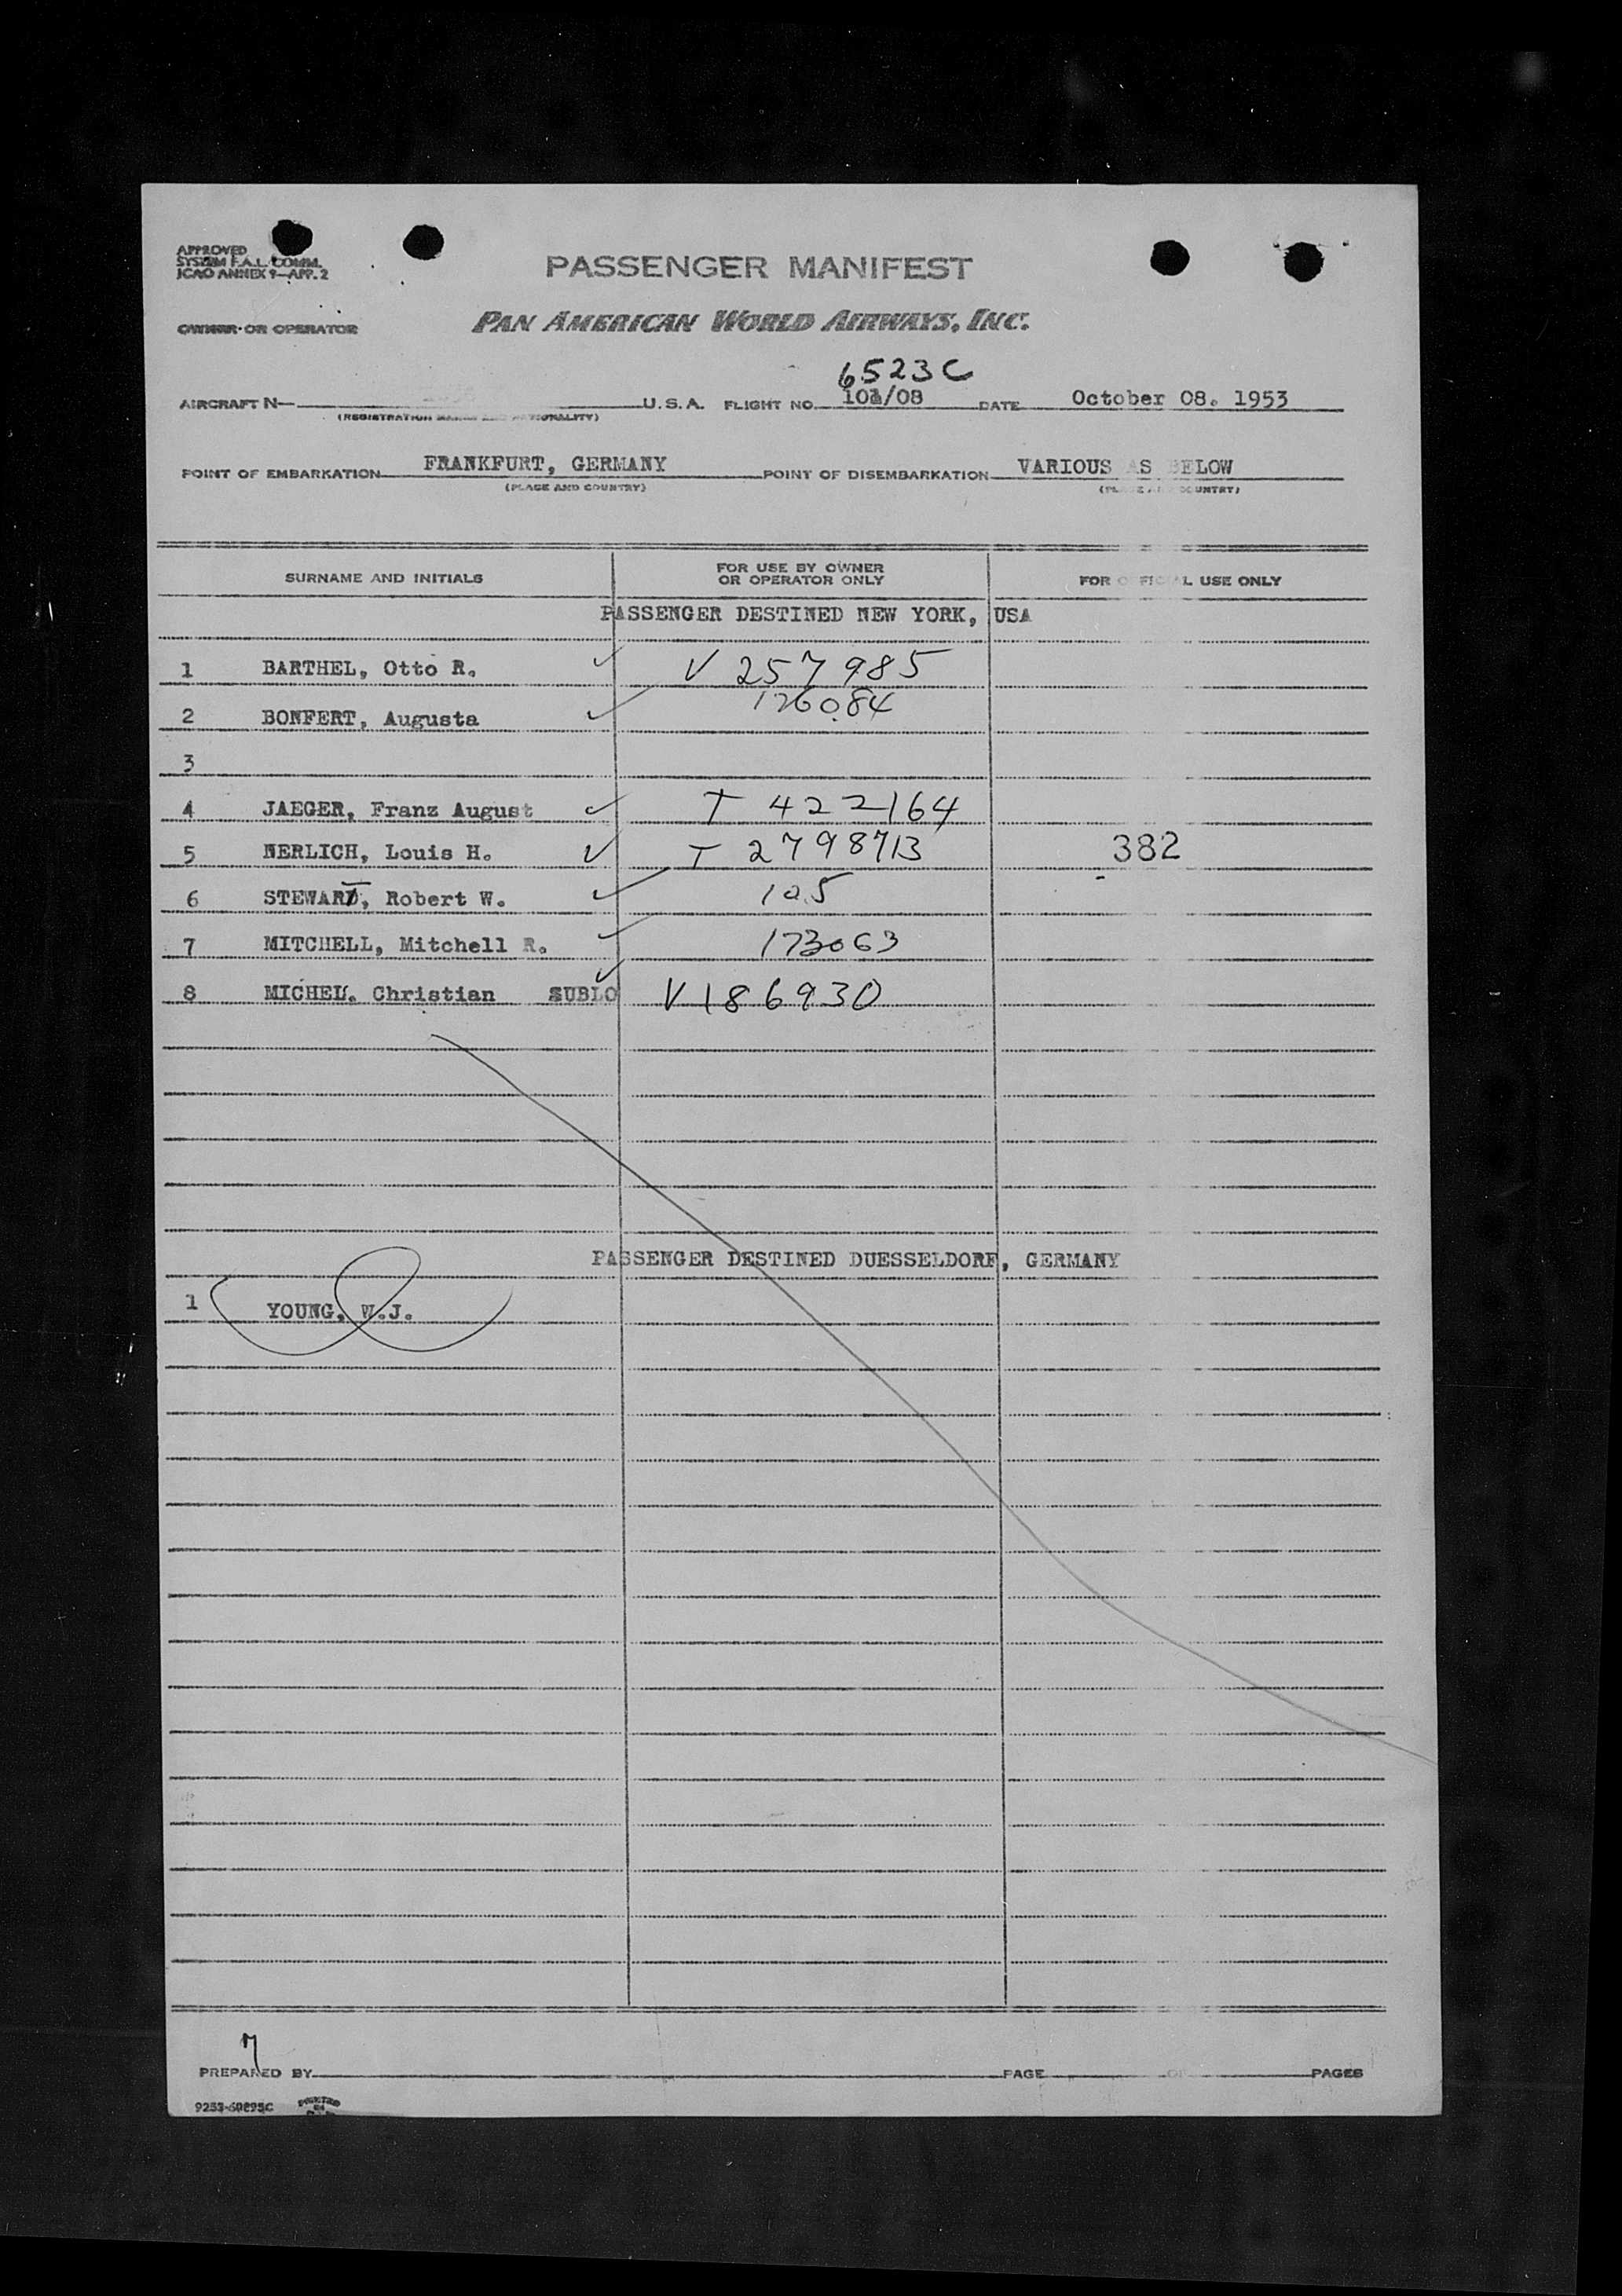 APPROVED
SYSTEM F.A.L. COMM.
ICAO ANNEX 9—APP. 2
PASSENGER MANIFEST
OWNER OR OPERATOR
PAN AMERICAN WORLD AIRWAYS, INC.
6523C
AIRCRAFT N— U.S.A. FLIGHT NO. 101/08 DATE October 08. 1953
(REGISTRATION
POINT OF EMBARKATION FRANKFURT, GERMANY POINT OF DISEMBARKATION VARIOUS AS BELOW
(PLACE AND COUNTRY) (PLACE AND COUNTRY)
SURNAME AND INITIALS FOR USE BY OWNER OR OPERATOR ONLY FOR OFFICIAL USE ONLY
PASSENGER DESTINED NEW YORK, USA
1 BARTHEL, Otto R. V 257985
2 BONFERT, Augusta 126084
3
4 JAEGER, Franz August T 422164
5 NERLICH, Louis H. T 2798713 382
6 STEWART, Robert W. 105
7 MITCHELL, Mitchell R. 173063
8 MICHEL. Christian SUBLO V186930
PASSENGER DESTINED DUESSELDORF, GERMANY
1 YOUNG, W.J.
PREPARED BY PAGE OF PAGES